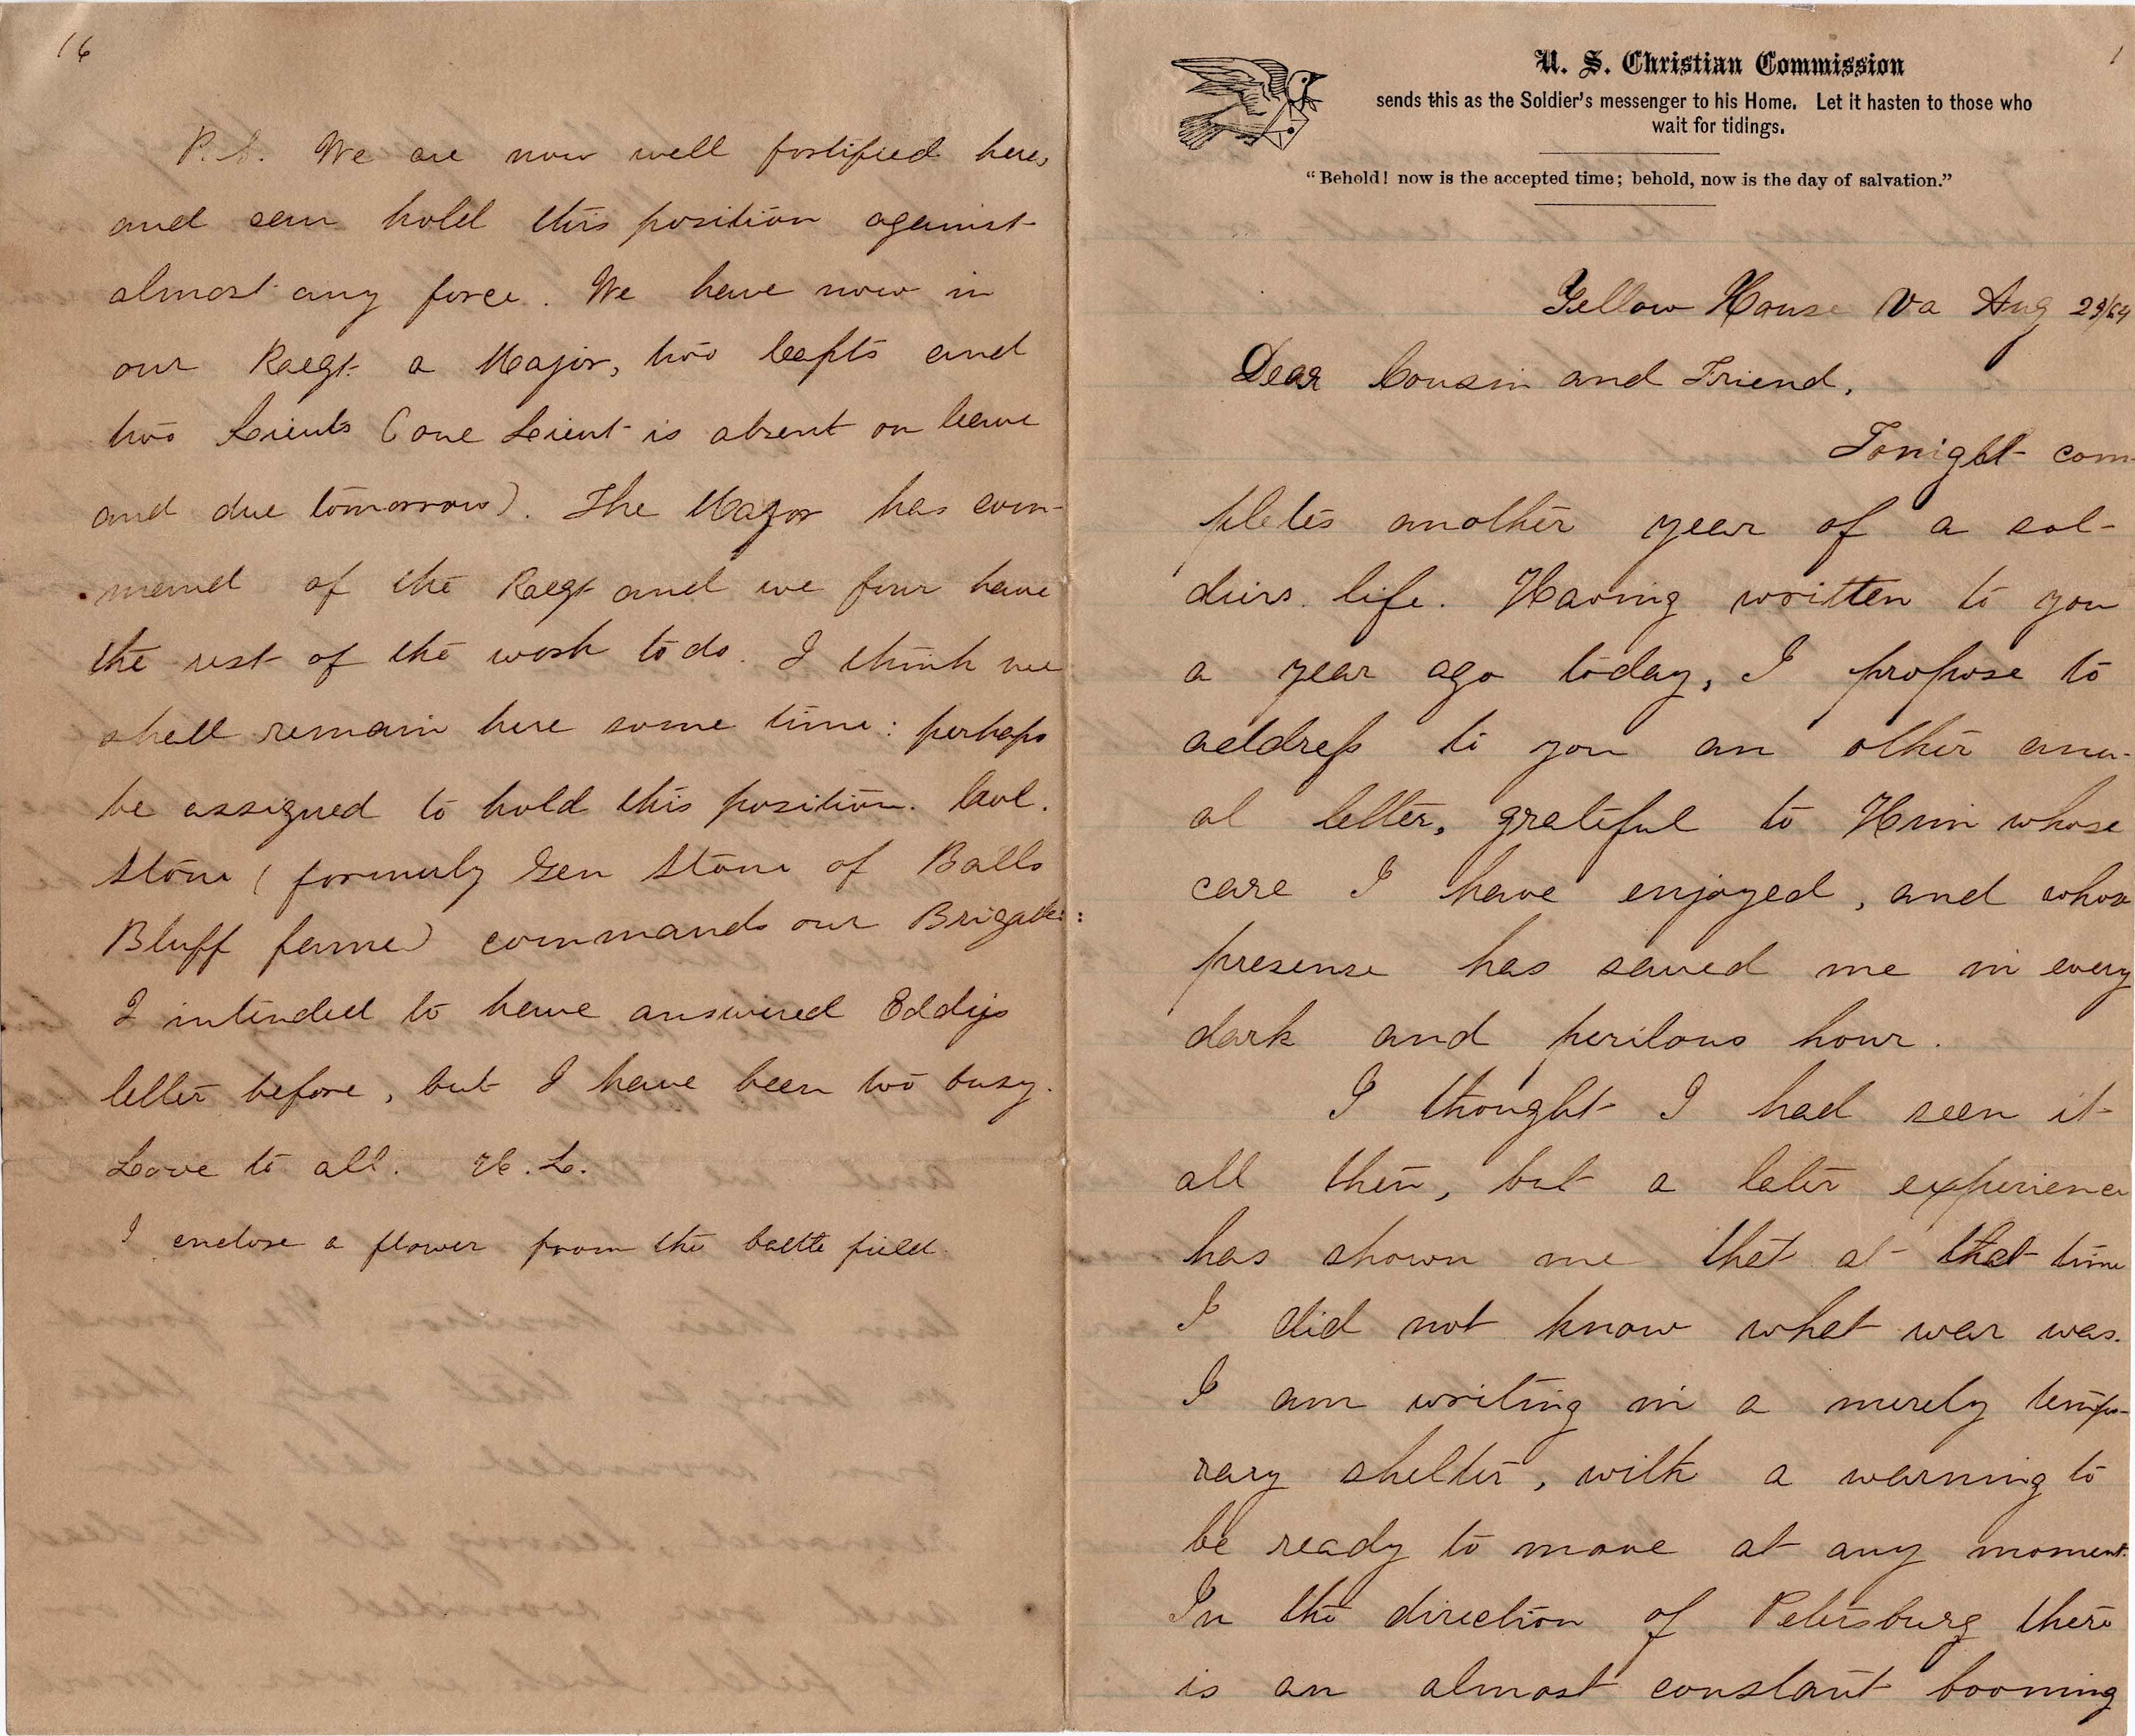 16
P.S. We are now well fortified here,
and can hold this position against
almost any force. We have now in
our Raegt a Major, two Capts and
two Lieuts (one Lieut is absent on leave
and due tomorrow). The Major has com-
mand of the Raegt and we four have
the rest of the work to do. I think we
shall remain here some time: perhaps
be assigned to hold this position. Col.
Stone (formerly Gen Stone of Balls
Bluff fame) commands our Brigade:
I intended to have answered Eddys
letter before, but I have been too busy.
Love to all. H. L.
I enclose a flower from the battle field.
1
U. S. Christian Commission
sends this as the Soldier's messenger to his Home. Let it hasten to those who
wait for tidings.
"Behold! now is the accepted time; behold, now is the day of salvation."
Yellow House Va Aug 29/64
Dear Cousin and Friend,
Tonight com-
pletes another year of a sol-
diers life. Having written to you
a year ago today, I propose to
address to you an other anu-
al letter, grateful to Him whose
care I have enjoyed, and whose
presense has saved me in every
dark and perilous hour.
I thought I had seen it
all then, but a later experience
has shown me that at that time
I did not know what war was.
I am writing in a merely tempo-
rary shelter, with a warning to
be ready to move at any moment.
In the direction of Petersburg there
is an almost constant booming